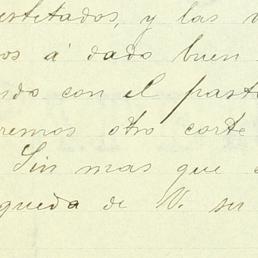 estetados, y las
os á dado buen
ndo con el pasto
remos otro corte
Sin mas que
queda de V. su